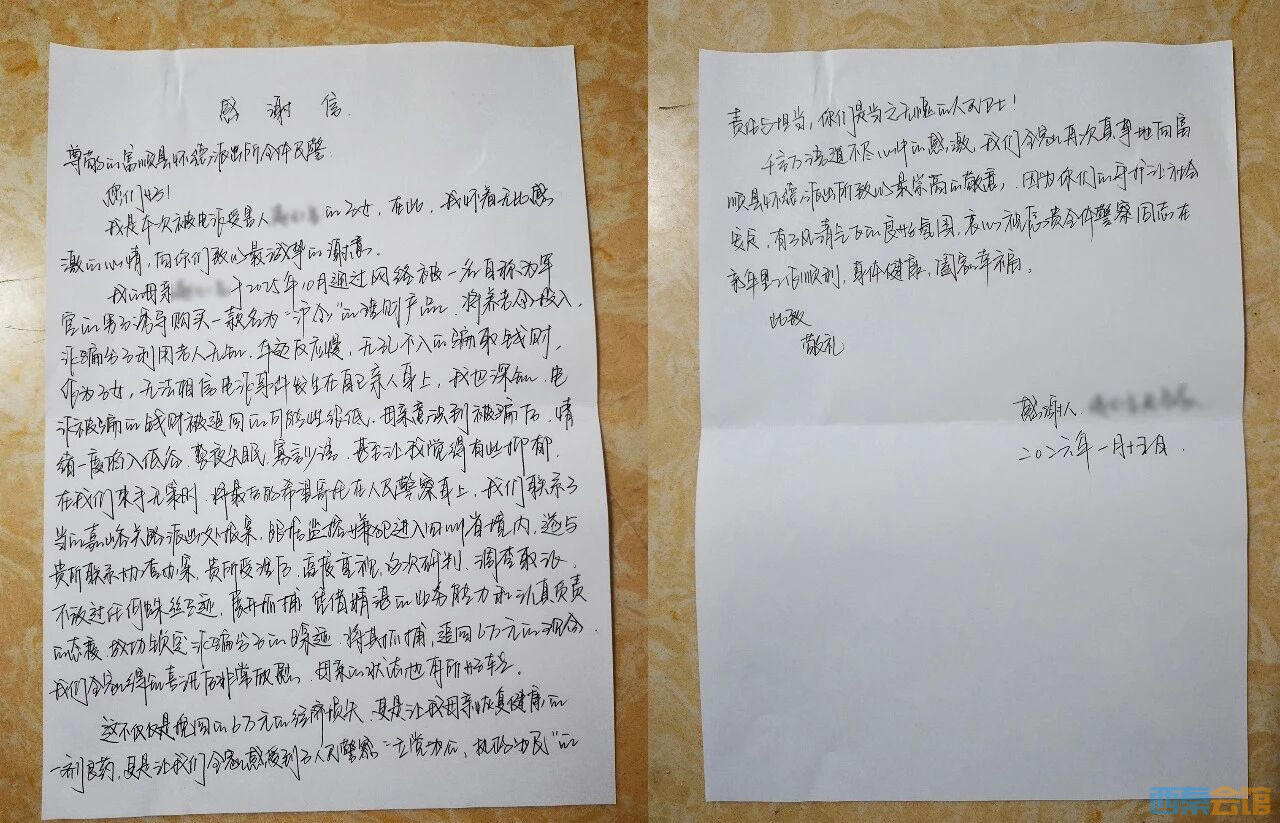 感谢信
尊敬的富顺县怀德派出所全体民警
你们好!
我是本次被电诈受害人 的子女,在此,我怀着无比感
激的心情,向你们致以最诚挚的谢意。
我的母亲 于2025年10月通过网络被一名自称为军
官的男子诱导购买一款名为“沪金”的理财产品,将养老金投入,
诈骗分子利用老人无知、年迈反应慢,无孔不入的骗取钱财,
作为子女,无法相信电诈事件发生在自己亲人身上,我也深知,电
诈被骗的钱财被追回的可能性很低,母亲意识到被骗后,情
绪一度陷入低谷,整夜失眠,寡言少语,甚至让我觉得有些抑郁,
在我们束手无策时,将最后的希望寄托在人民警察身上,我们联系了
当的嘉峪关 派出所报案,
嫌犯进入四川省境内,遂与
贵所联系协查办案,贵所受理后,高度重视,多次研判、调查取证,
不放过任何蛛丝马迹,展开抓捕,凭借精湛的业务能力和认真负责
的态度,成功锁定诈骗分子的踪迹,将其抓捕,追回6万元的现金,
我们全家得知喜讯后非常欣慰,母亲的状态也有所好转。
这不仅仅是挽回的6万元的经济损失,更是让我母亲恢复健康的
一剂良药,更是让我们全家感受到了人民警察“立党为公,执政为民”的
责任与担当,你们是当之无愧的人民卫士!
千言万语道不尽心中的感激,我们全家再次真挚地向富
顺县怀德派出所致以最崇高的敬意,因为你们的守护让社会
安定,有了风清气正的良好氛围,衷心祝愿贵全体警察同志在
新年里工作顺利,身体健康,阖家幸福。
此致
敬礼
感谢人
二〇二六年一月十五日.
西秦会馆